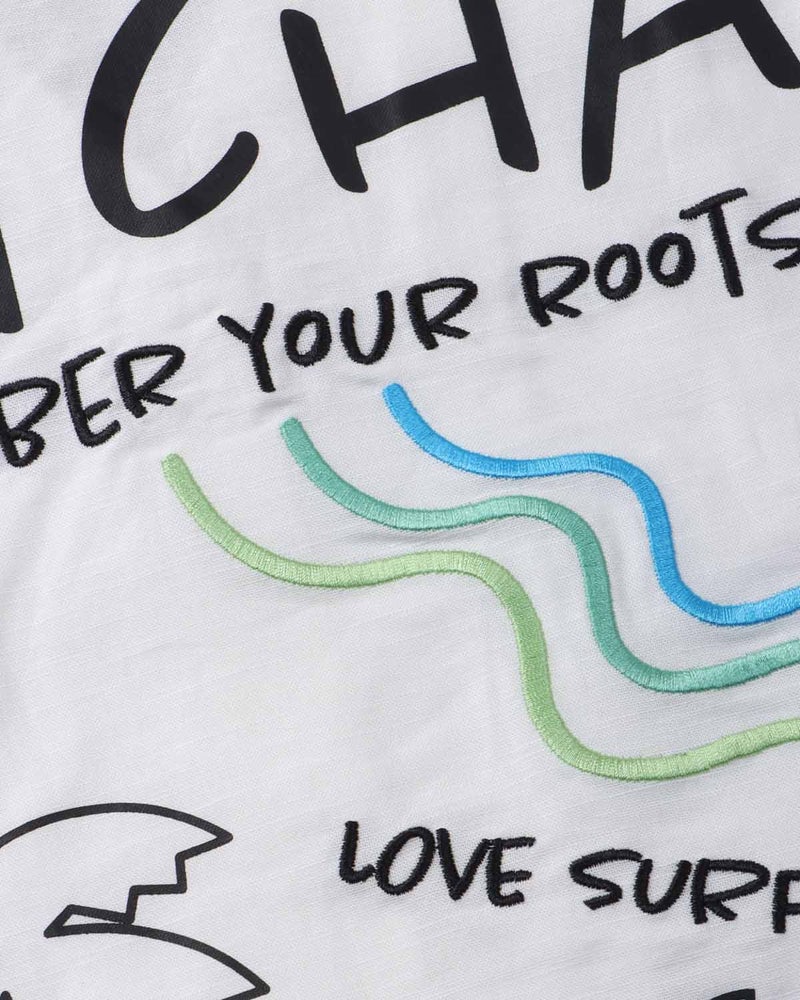 CHA
BER YOUR ROOTS
LOVE SURF